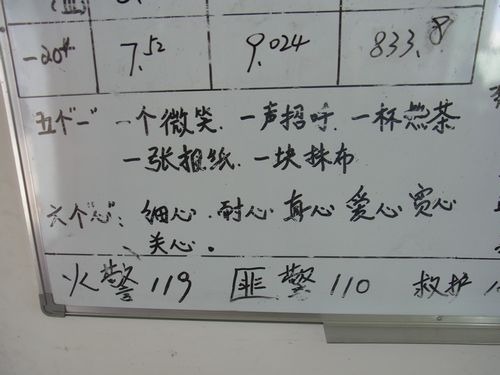 -20# 7.52 9.024 833.8
五个一 一个微笑. 一声招呼. 一杯热茶
一张报纸. 一块抹布
六个心: 细心. 耐心 真心 爱心 宽心
关心.
火警 119 匪警 110 救护